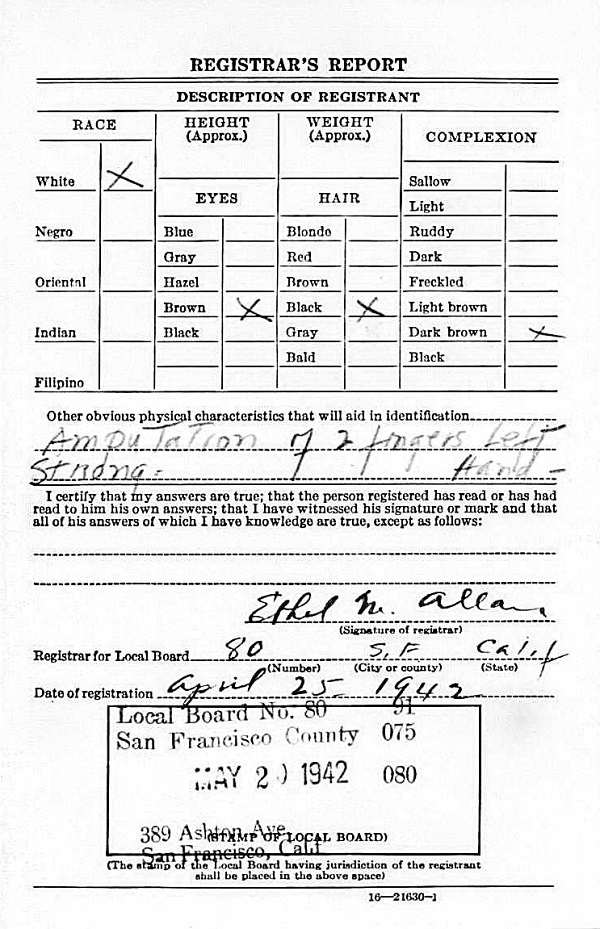 REGISTRAR'S REPORT
DESCRIPTION OF REGISTRANT
RACE
HEIGHT
(Approx.)
WEIGHT
(Approx.)
COMPLEXION
White X
EYES
HAIR
Sallow
Light
Negro
Blue
Blonde
Ruddy
Gray
Red
Dark
Oriental
Hazel
Brown
Freckled
Brown X
Black X
Light brown
Indian
Black
Gray
Dark brown X
Bald
Black
Filipino
Other obvious physical characteristics that will aid in identification
Amputation of 2 fingers Left
Strong - Hand -
I certify that my answers are true; that the person registered has read or has had
read to him his own answers; that I have witnessed his signature or mark and that
all of his answers of which I have knowledge are true, except as follows:
Ethel M. Allan
(Signature of registrar)
Registrar for Local Board 80 S.F Calif
(Number) (City or county) (State)
Date of registration April 25 - 1942
Local Board No. 80 91
San Francisco County 075
MAY 20 1942 080
389 Ashton Ave.
(STAMP OF LOCAL BOARD)
San Francisco, Calif.
(The stamp of the Local Board having jurisdiction of the registrant
shall be placed in the above space)
16—21630-1